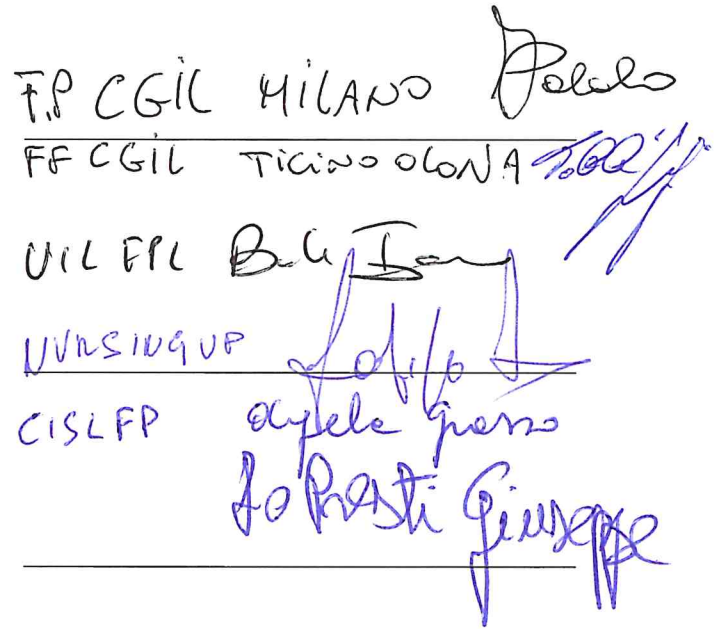 F.P CGIL MILANO
FF CGIL TICINO OLONA
UIL FPL
NURSINGUP
CISLFP angela grasso
Lo Presti Giuseppe